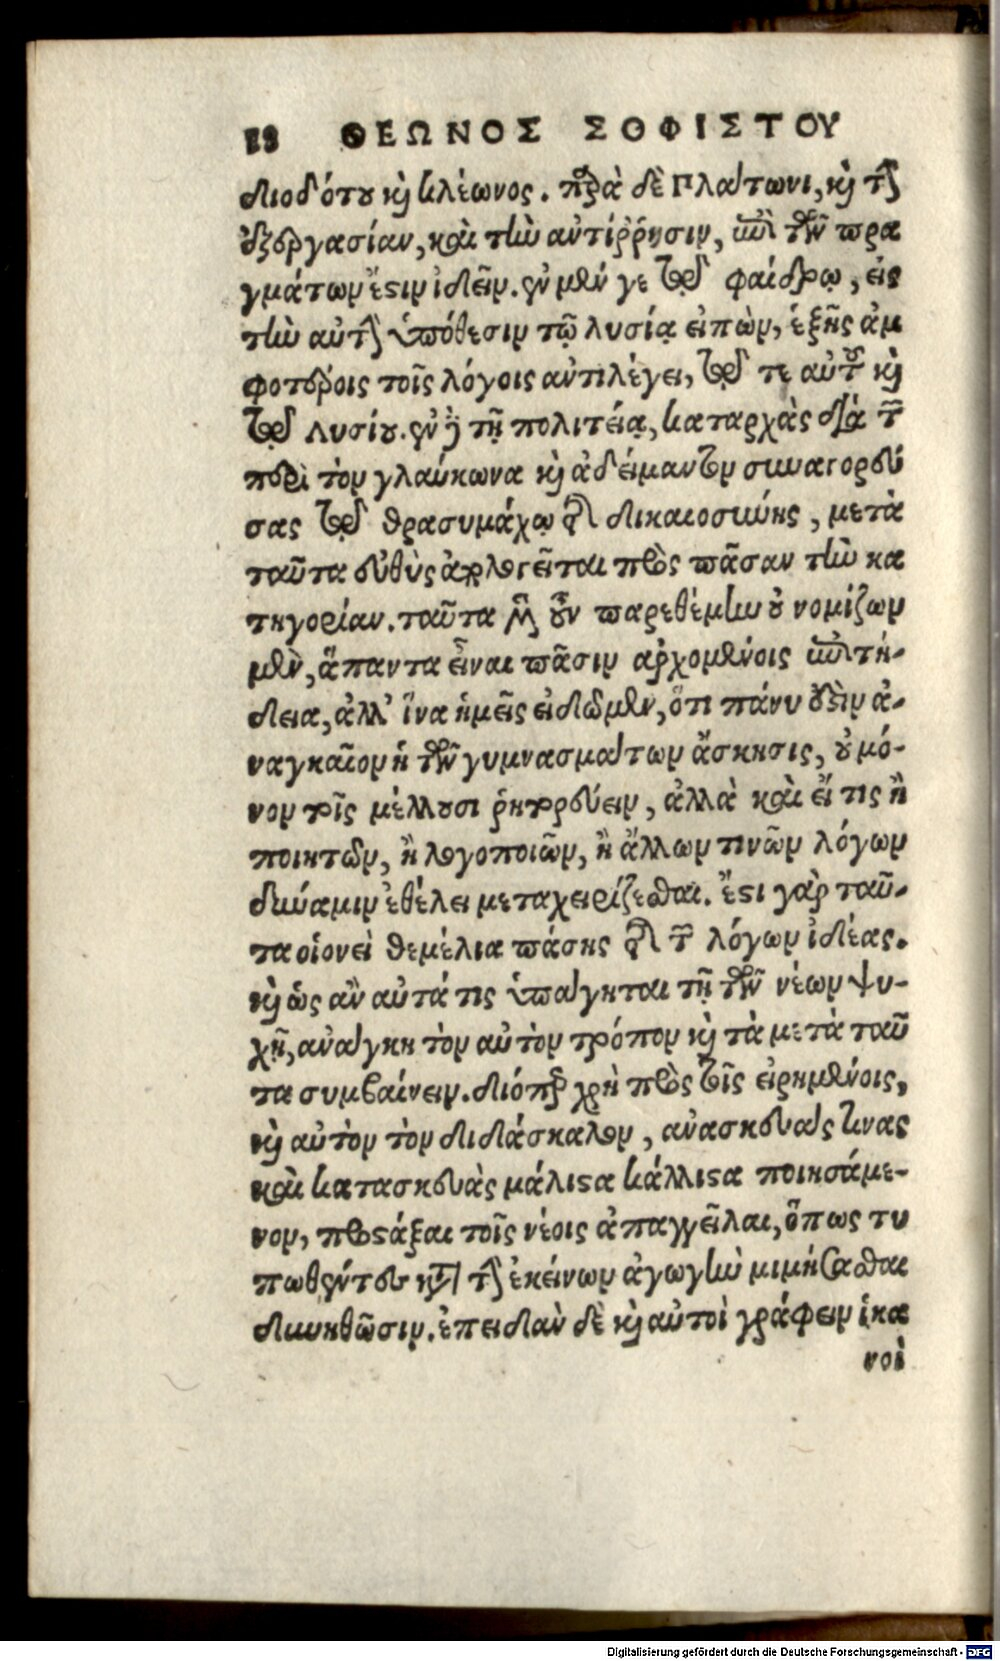 18 ΘΕΩΝΟΣ ΣΟΦΙΣΤΟΥ
διοδότου καὶ κλέωνος. παρὰ δὲ Πλάτωνι, καὶ τὴν
ἐξεργασίαν, καὶ τὴν ἀντίῤῥησιν, ἐπὶ τῶν πρα
γμάτων ἔστιν ἰδεῖν. ἐν μέν γε τῷ φαίδρῳ, εἰς
τὴν αὐτὴν ὑπόθεσιν τῷ λυσίᾳ εἰπὼν, ἑξῆς ἀμ
φοτέροις τοῖς λόγοις ἀντιλέγει, τῷ τε αὐτοῦ καὶ
τῷ Λυσίου. ἐν δὲ τῇ πολιτείᾳ, καταρχὰς διὰ τῶν
περὶ τὸν γλαύκωνα καὶ ἀδείμαντον συναγορεύ
σας τῷ θρασυμάχῳ περὶ δικαιοσύνης, μετὰ
ταῦτα εὐθὺς ἀπολογεῖται πρὸς πᾶσαν τὴν κα
τηγορίαν. ταῦτα μὲν οὖν παρεθέμην οὐ νομίζων
μὲν, ἅπαντα εἶναι πᾶσιν ἀρχομένοις ἐπιτή-
δεια, ἀλλ' ἵνα ἡμεῖς εἰδῶμεν, ὅτι πάνυ ἐστὶν ἀ-
ναγκαῖον ἡ τῶν γυμνασμάτων ἄσκησις, οὐ μό-
νον τοῖς μέλλουσι ῥητορεύειν, ἀλλὰ καὶ εἴ τις ἢ
ποιητῶν, ἢ λογοποιῶν, ἢ ἄλλων τινῶν λόγων
δύναμιν ἐθέλει μεταχειρίζεσθαι. ἔστι γὰρ ταῦ-
τα οἱονεὶ θεμέλια πάσης τῆς τῶν λόγων ἰδέας.
καὶ ὡς ἂν αὐτά τις ὑπάγηται τῇ τῶν νέων ψυ-
χῇ, ἀνάγκη τὸν αὐτὸν τρόπον καὶ τὰ μετὰ ταῦ
τα συμβαίνειν. διόπερ χρὴ πρὸς τοῖς εἰρημένοις,
καὶ αὐτὸν τὸν διδάσκαλον, ἀνασκευάς τινας
καὶ κατασκευὰς μάλιστα κάλλιστα ποιησάμε-
νον, προστάξαι τοῖς νέοις ἀπαγγεῖλαι, ὅπως τυ
πωθέντες κατὰ τὴν ἐκείνων ἀγωγὴν μιμήσασθαι
δυνηθῶσιν. ἐπειδὰν δὲ καὶ αὐτοὶ γράφειν ἱκα
νοὶ
Digitalisierung gefördert durch die Deutsche Forschungsgemeinschaft - DFG